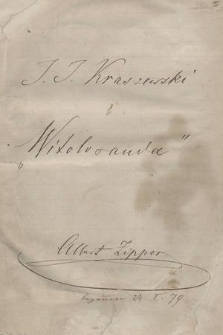 J. I. Kraszewski
"Witolorauda"
Albert Zipper
24. X. 79